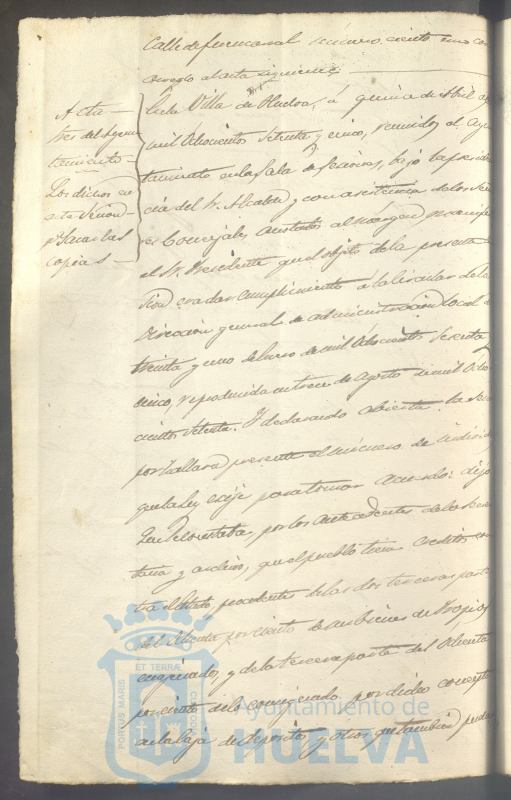 Calle de fuencarral número ciento uno co
arreglo al acta siguiente
Acta
tres del Ayun
tamiento
Los dichos en
esta Sesion
p.ª sacar las
copias
En la Villa de Huelva, á quince de Abril de
mil Ochocientos Setenta y cinco, reunidos el Ayun
tamiento en la sala de sesiones, bajo la presiden
cia del Sr. Alcalde y con asistencia de los Seño
res Concejales anotados al margen, manifes
el Sr. Presidente que el objeto de la presente se
sion era dar cumplimiento a la Circular de la
Direccion general de administracion local de
treinta y uno de Enero de mil Ochocientos Sesenta y
cinco, reproducida en trece de Agosto de mil Ocho
cientos Setenta. Y declarando abierta la Sesion
por hallarse presente el número de individuos
que la Ley exije para tomar acuerdo: dijo
Que le constaba, por los antecedentes de la Secre
taria y archivo, que el pueblo tiene creditos con
tra el Estado, procedentes de las dos terceras partes
del Ochenta por ciento de sus bienes de Propios
enajenados, y de la tercera parte del Ochenta
por ciento de lo consignado por dicho concepto
en la Caja de Depositos y otros que tambien pueden
PORTUS MARIS ET TERRÆ CUSTODIA
Ayuntamiento de
HUELVA